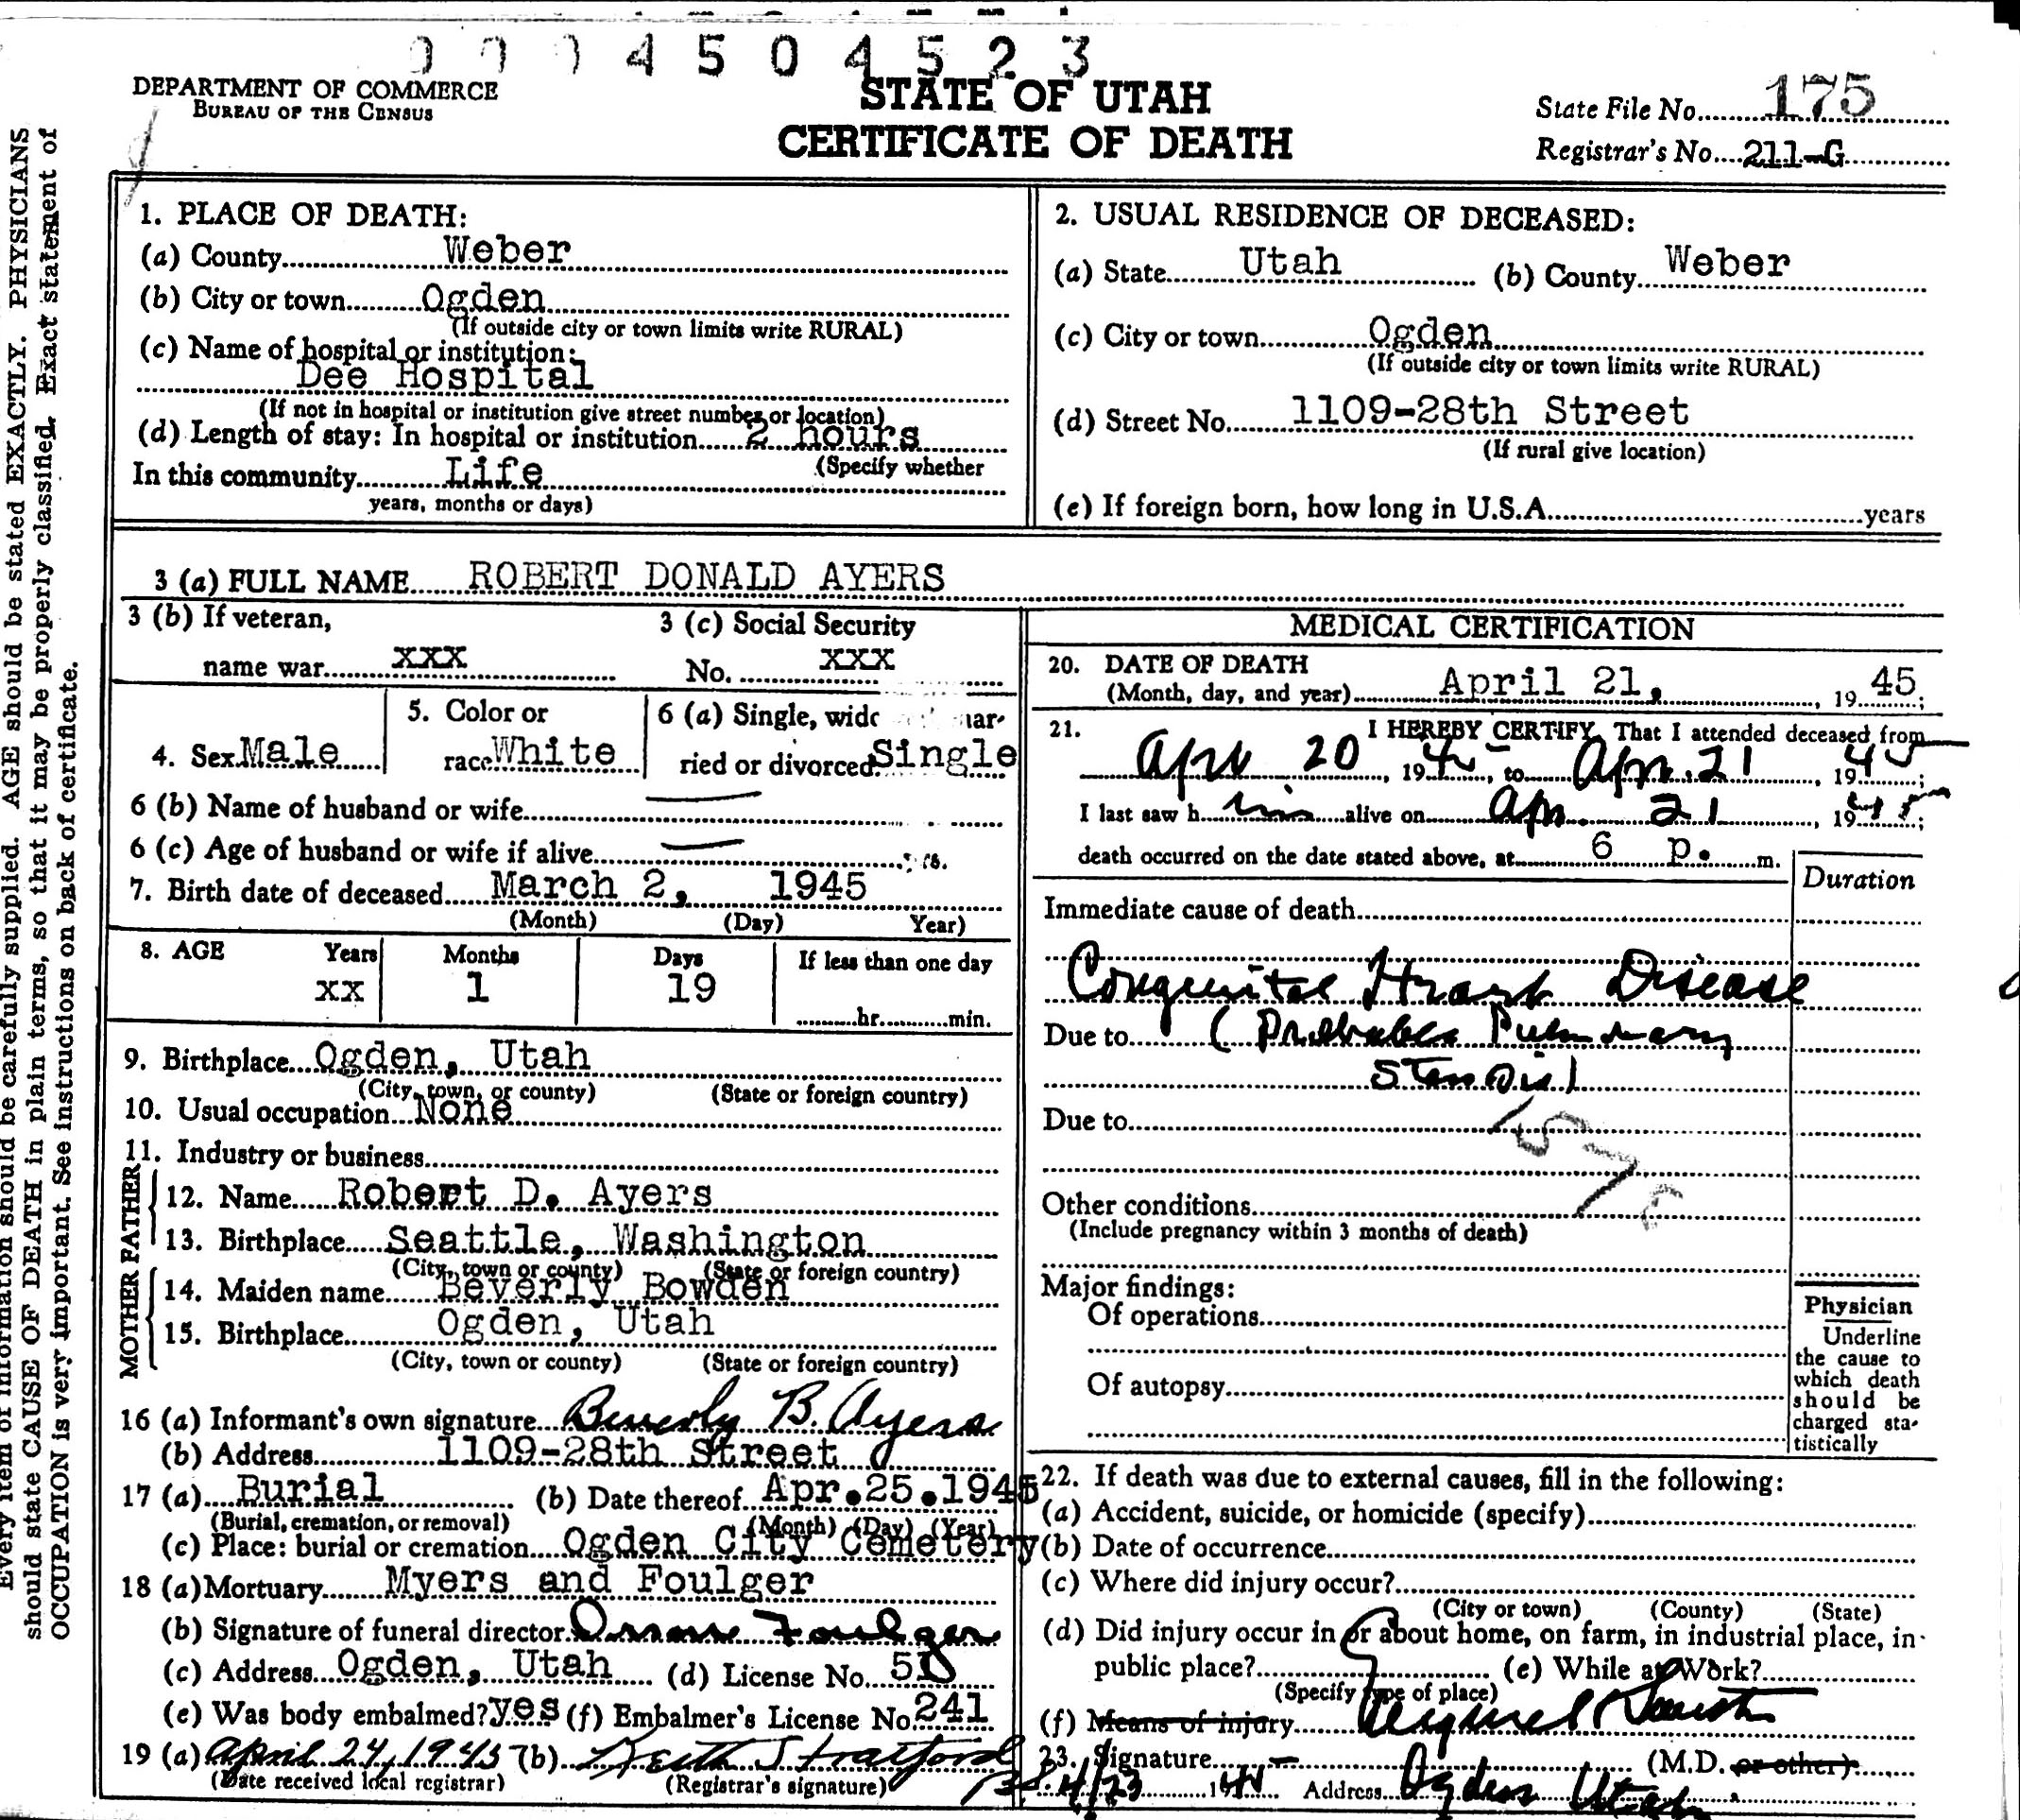 4 5 0 4 5 2 3
DEPARTMENT OF COMMERCE
BUREAU OF THE CENSUS
STATE OF UTAH
CERTIFICATE OF DEATH
State File No. 175
Registrar's No. 211-G
Every item of information should be carefully supplied. AGE should be stated EXACTLY. PHYSICIANS
should state CAUSE OF DEATH in plain terms, so that it may be properly classified. Exact statement of
OCCUPATION is very important. See instructions on back of certificate.
1. PLACE OF DEATH:
(a) County Weber
(b) City or town Ogden
(If outside city or town limits write RURAL)
(c) Name of hospital or institution:
Dee Hospital
(If not in hospital or institution give street number or location)
(d) Length of stay: In hospital or institution 2 hours
(Specify whether
In this community Life
years, months or days)
2. USUAL RESIDENCE OF DECEASED:
(a) State Utah (b) County Weber
(c) City or town Ogden
(If outside city or town limits write RURAL)
(d) Street No. 1109-28th Street
(If rural give location)
(e) If foreign born, how long in U.S.A. years
3 (a) FULL NAME ROBERT DONALD AYERS
3 (b) If veteran,
name war xxx
3 (c) Social Security
No. xxx
4. Sex Male
5. Color or
race White
6 (a) Single, wido mar-
ried or divorced Single
6 (b) Name of husband or wife
6 (c) Age of husband or wife if alive rs.
7. Birth date of deceased March 2, 1945
(Month) (Day) Year)
8. AGE Years Months Days If less than one day
xx 1 19
hr. min.
9. Birthplace Ogden, Utah
(City, town, or county) (State or foreign country)
10. Usual occupation None
11. Industry or business
FATHER
12. Name Robert D. Ayers
13. Birthplace Seattle, Washington
(City, town or county) (State or foreign country)
MOTHER
14. Maiden name Beverly Bowden
15. Birthplace Ogden, Utah
(City, town or county) (State or foreign country)
16 (a) Informant's own signature Beverly B. Ayers
(b) Address 1109-28th Street
17 (a) Burial (b) Date thereof Apr.25.1945
(Burial, cremation, or removal) (Month) (Day) (Year)
(c) Place: burial or cremation Ogden City Cemetery
18 (a) Mortuary Myers and Foulger
(b) Signature of funeral director Foulger
(c) Address Ogden, Utah (d) License No.
(e) Was body embalmed? yes (f) Embalmer's License No. 241
19 (a) April 24, 1945 (b) Keith Stratford
(Date received local registrar) (Registrar's signature)
MEDICAL CERTIFICATION
20. DATE OF DEATH
(Month, day, and year) April 21, 19 45;
21. I HEREBY CERTIFY, That I attended deceased from
Apr 20, 19 45, to Apr. 21, 19 45;
I last saw h im alive on Apr. 21, 19 45;
death occurred on the date stated above, at 6 p. m.
Duration
Immediate cause of death
Congenital Heart Disease
Due to (Probable Pulmonary
Stenosis)
Due to
Other conditions
(Include pregnancy within 3 months of death)
Major findings:
Of operations
Of autopsy
Physician
Underline
the cause to
which death
should be
charged sta-
tistically
22. If death was due to external causes, fill in the following:
(a) Accident, suicide, or homicide (specify)
(b) Date of occurrence
(c) Where did injury occur?
(City or town) (County) (State)
(d) Did injury occur in or about home, on farm, in industrial place, in
public place? (e) While at Work?
(Specify type of place)
(f) Means of injury
23. Signature (M.D. or other)
4/23 19 Address Ogden Utah